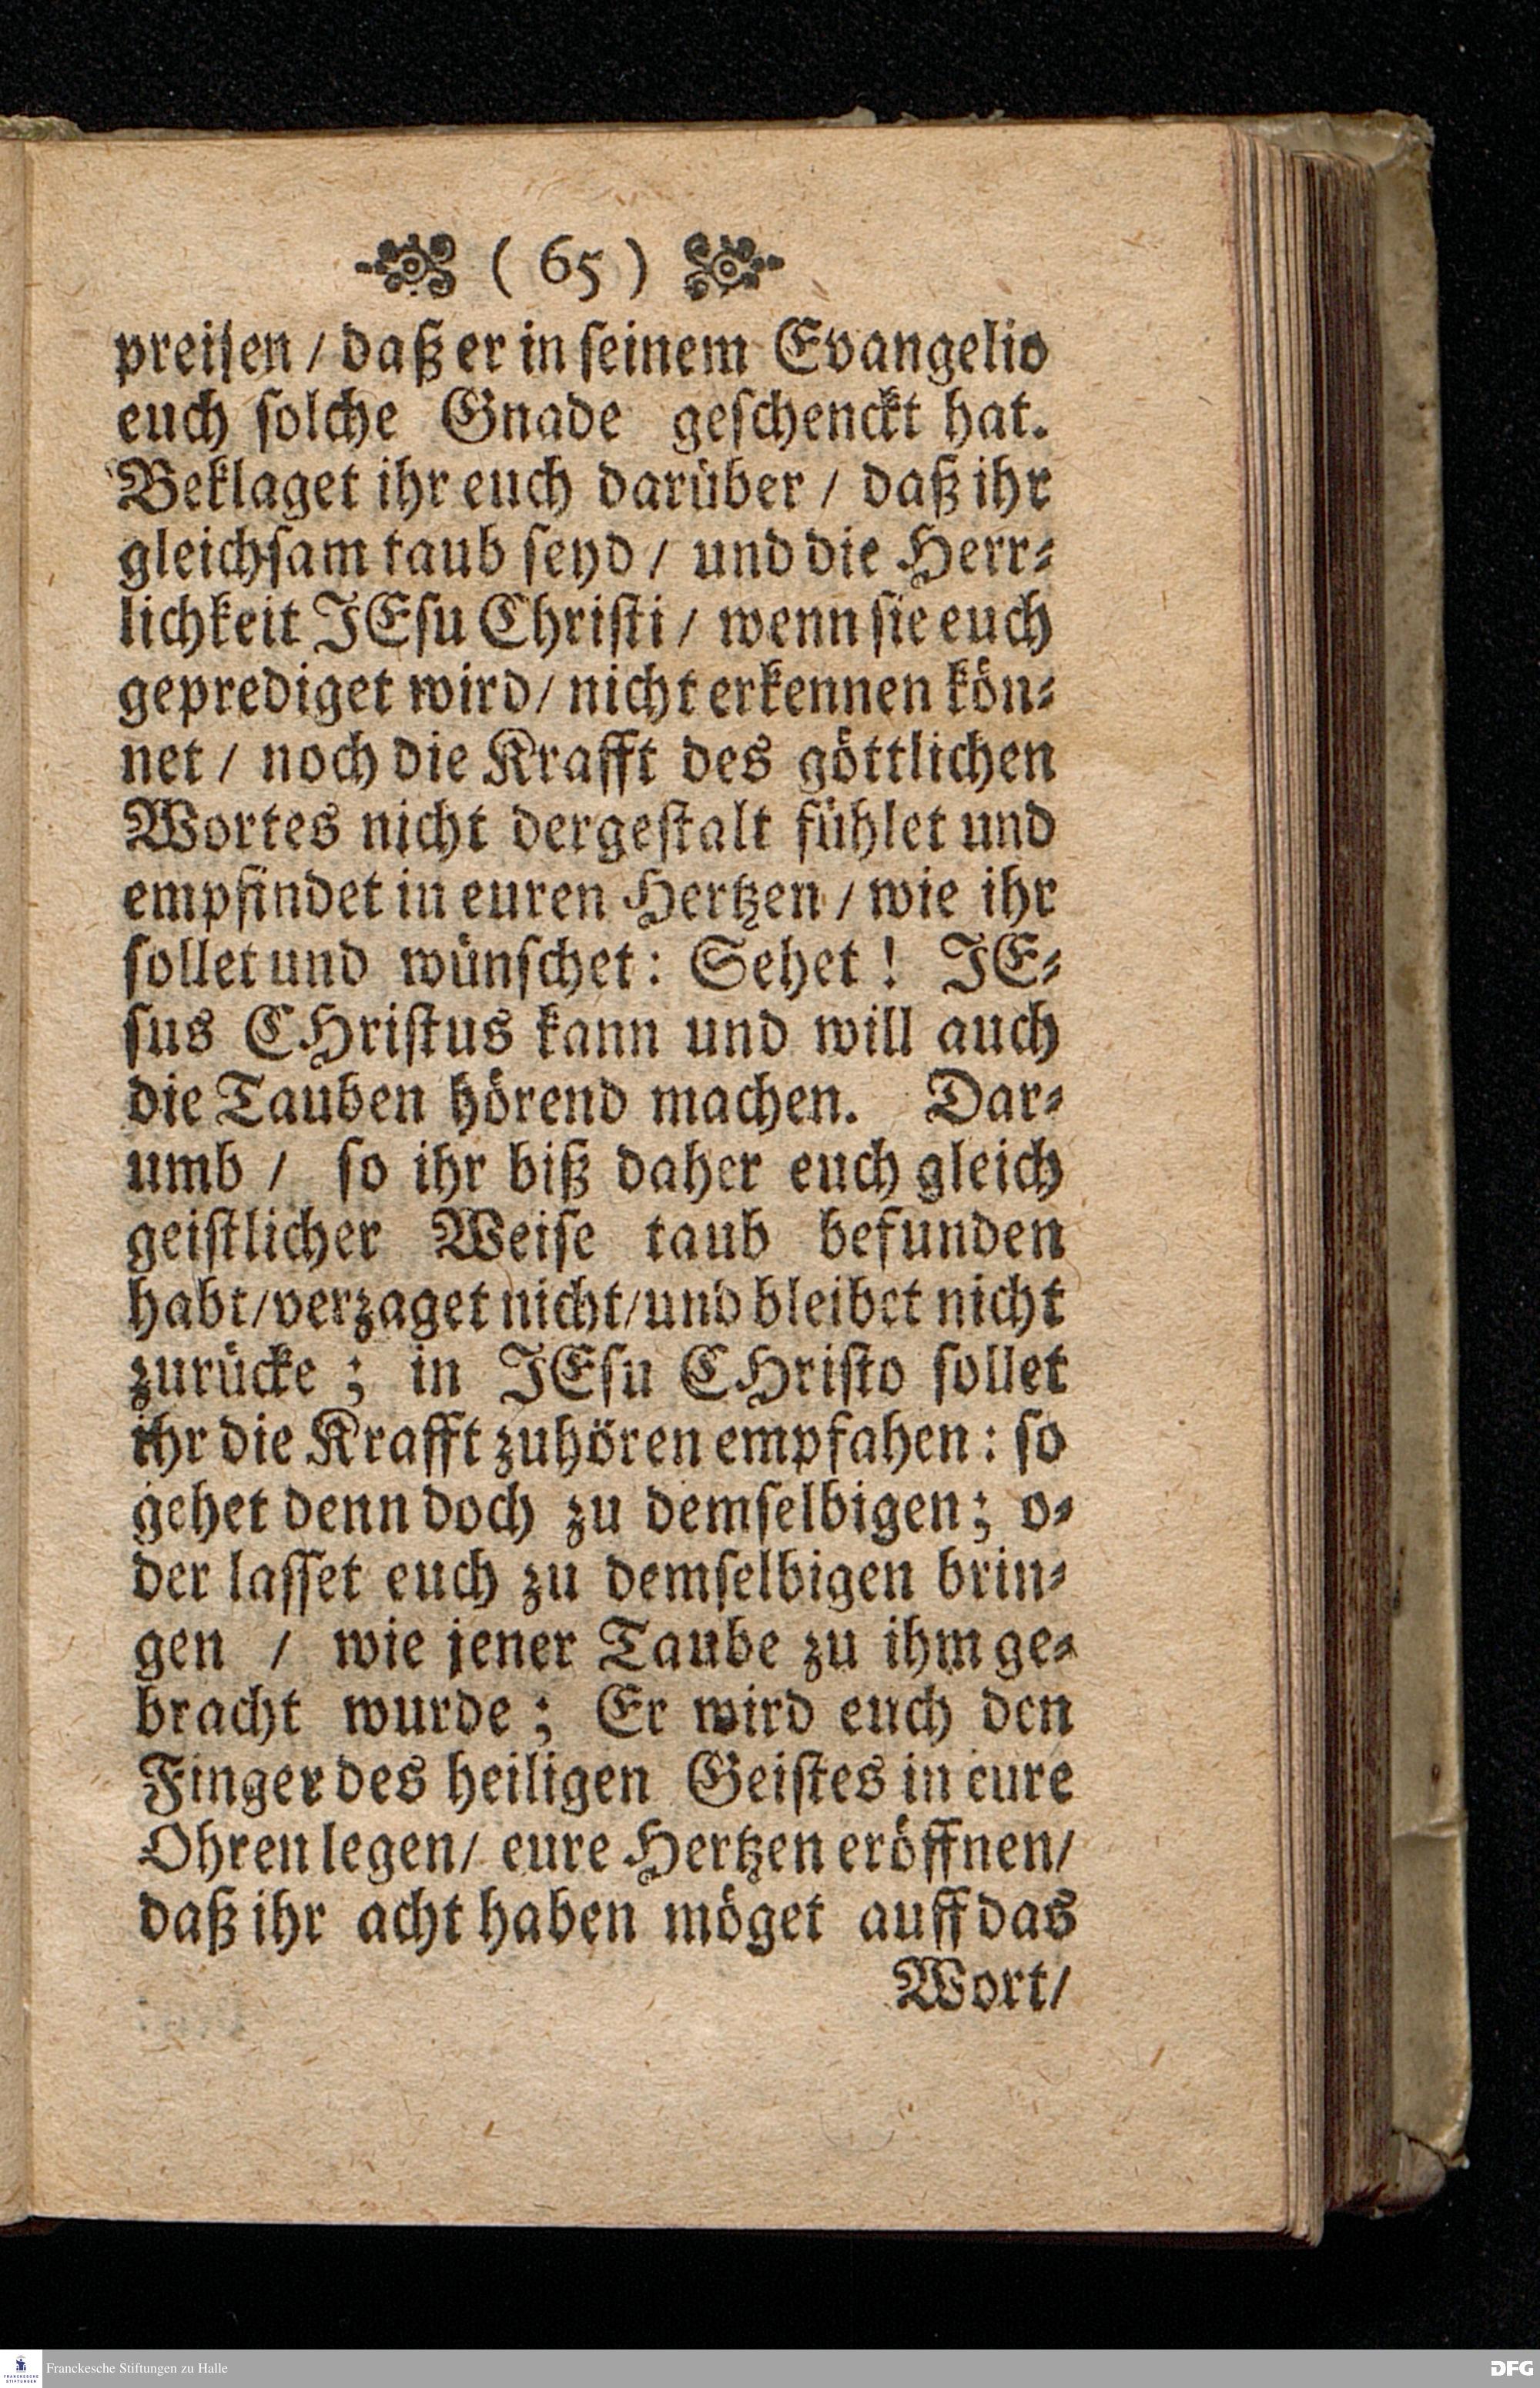 ( 65 )
preisen / daß er in seinem Evangelio
euch solche Gnade geschenckt hat.
Beklaget ihr euch darüber / daß ihr
gleichsam taub seyd / und die Herr-
lichkeit JEsu Christi / wenn sie euch
geprediget wird / nicht erkennen kön-
net / noch die Krafft des göttlichen
Wortes nicht dergestalt fühlet und
empfindet in euren Hertzen / wie ihr
sollet und wünschet: Sehet! JE-
sus CHristus kann und will auch
die Tauben hörend machen. Dar-
umb / so ihr biß daher euch gleich
geistlicher Weise taub befunden
habt / verzaget nicht / und bleibet nicht
zurücke; in JEsu CHristo sollet
ihr die Krafft zuhören empfahen: so
gehet denn doch zu demselbigen; o-
der lasset euch zu demselbigen brin-
gen / wie jener Taube zu ihm ge-
bracht wurde; Er wird euch den
Finger des heiligen Geistes in eure
Ohren legen / eure Hertzen eröffnen /
daß ihr acht haben möget auff das
Wort /
FRANCKESCHE
STIFTUNGEN
Franckesche Stiftungen zu Halle
DFG